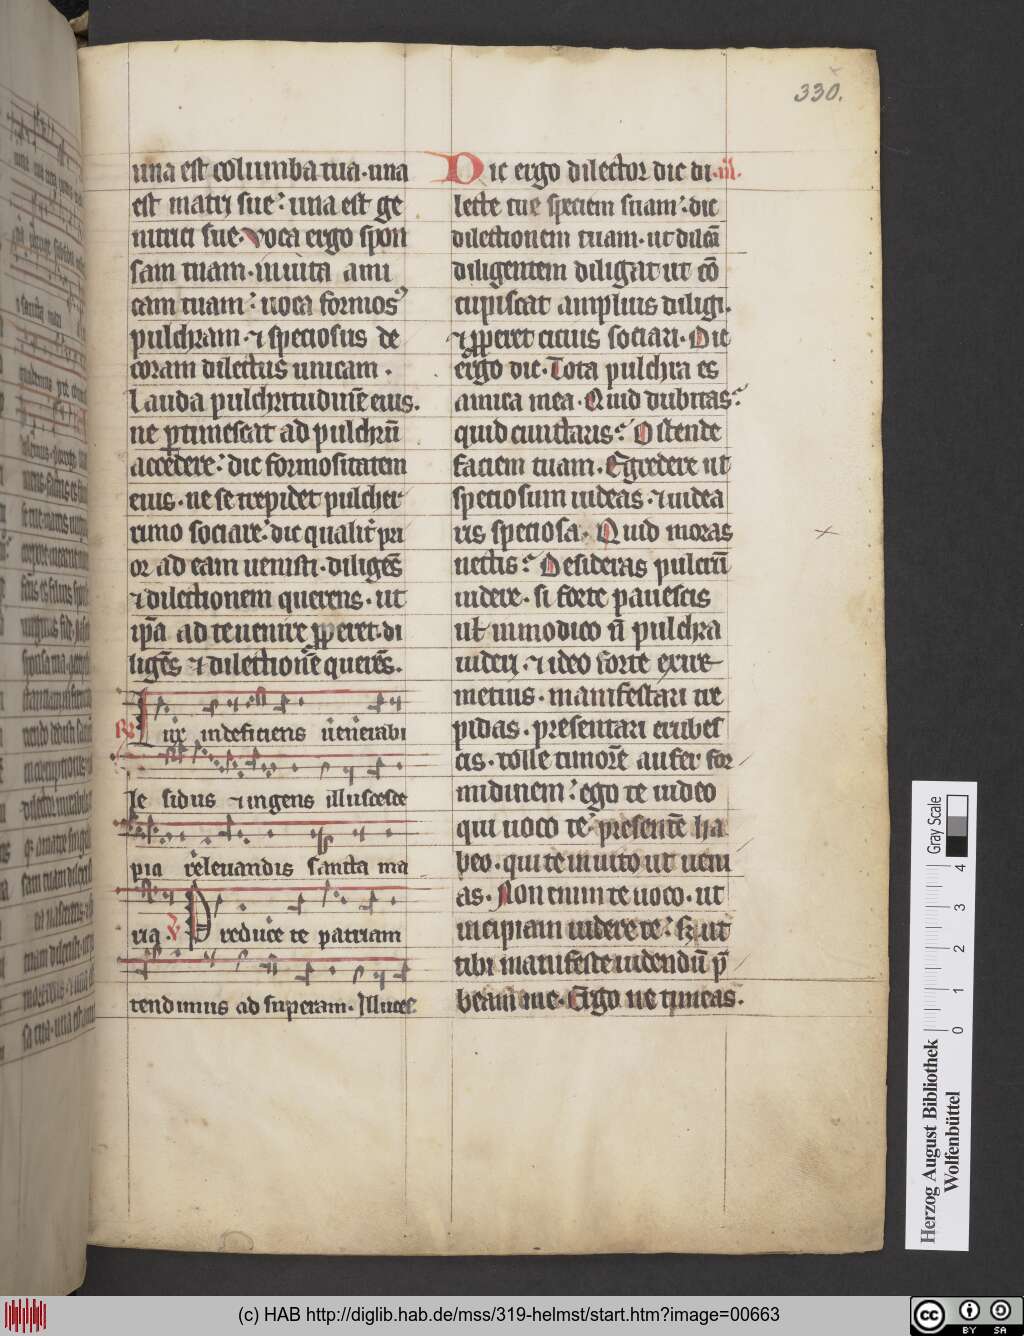 330.
una est columba tua. una
est matri sue: una est ge
nitrici sue. voca ergo spon
sam tuam. inuita ami
cam tuam: uoca formosꝰ
pulchram. ⁊ speciosus de
coram dilectus unicam.
Lauda pulchritudinē eius.
ne ꝑtimescat ad pulchrū
accedere: dic formositatem
eius. ne se trepidet pulcher
rimo sociare: dic qualit̄ pri
or ad eam uenisti. diligēs
⁊ dilectionem querens. ut
ip̄a ad te uenire ꝓperet. di
ligēs ⁊ dilectionē querēs.
R Lux indeficiens uēnerabi
le sidus ⁊ ingens illucesce
pia releuandis sancta ma
ria. V Preduce te patriam
tendimus ad superam. Illuces
Dic ergo dilector dic di iii.
lecte tue speciem suam: dic
dilectionem tuam. ut dilc̄a
diligentem diligat ut cō
cupiscat amplius diligi.
⁊ ꝓperet citius sociari. Dic
ergo dic. Tota pulchra es
amica mea. Quid dubitas?
quid cunctaris? Ostende
faciem tuam. Egredere ut
speciosum uideas. ⁊ uidea
ris speciosa. Quid moras
nectis? Desideras pulcrū
uidere. si forte pauescis
ul̄ inmodico n̄ pulchra
uideri. ⁊ ideo forte exire
metuis. manifestari tre
pidas. presentari erubes
cis. tolle timorē aufer for
midinem: ego te uideo
qui uoco te: presentē ha
beo. qui te inuito ut ueni
as. Non enim te uoco. ut
incipiam uidere te: sꝫ ut
tibi manifeste uidendū p̄
beam me. Ergo ne timeas.
Gray Scale
0 1 2 3 4
Herzog August Bibliothek
Wolfenbüttel
(c) HAB http://diglib.hab.de/mss/319-helmst/start.htm?image=00663
cc BY SA